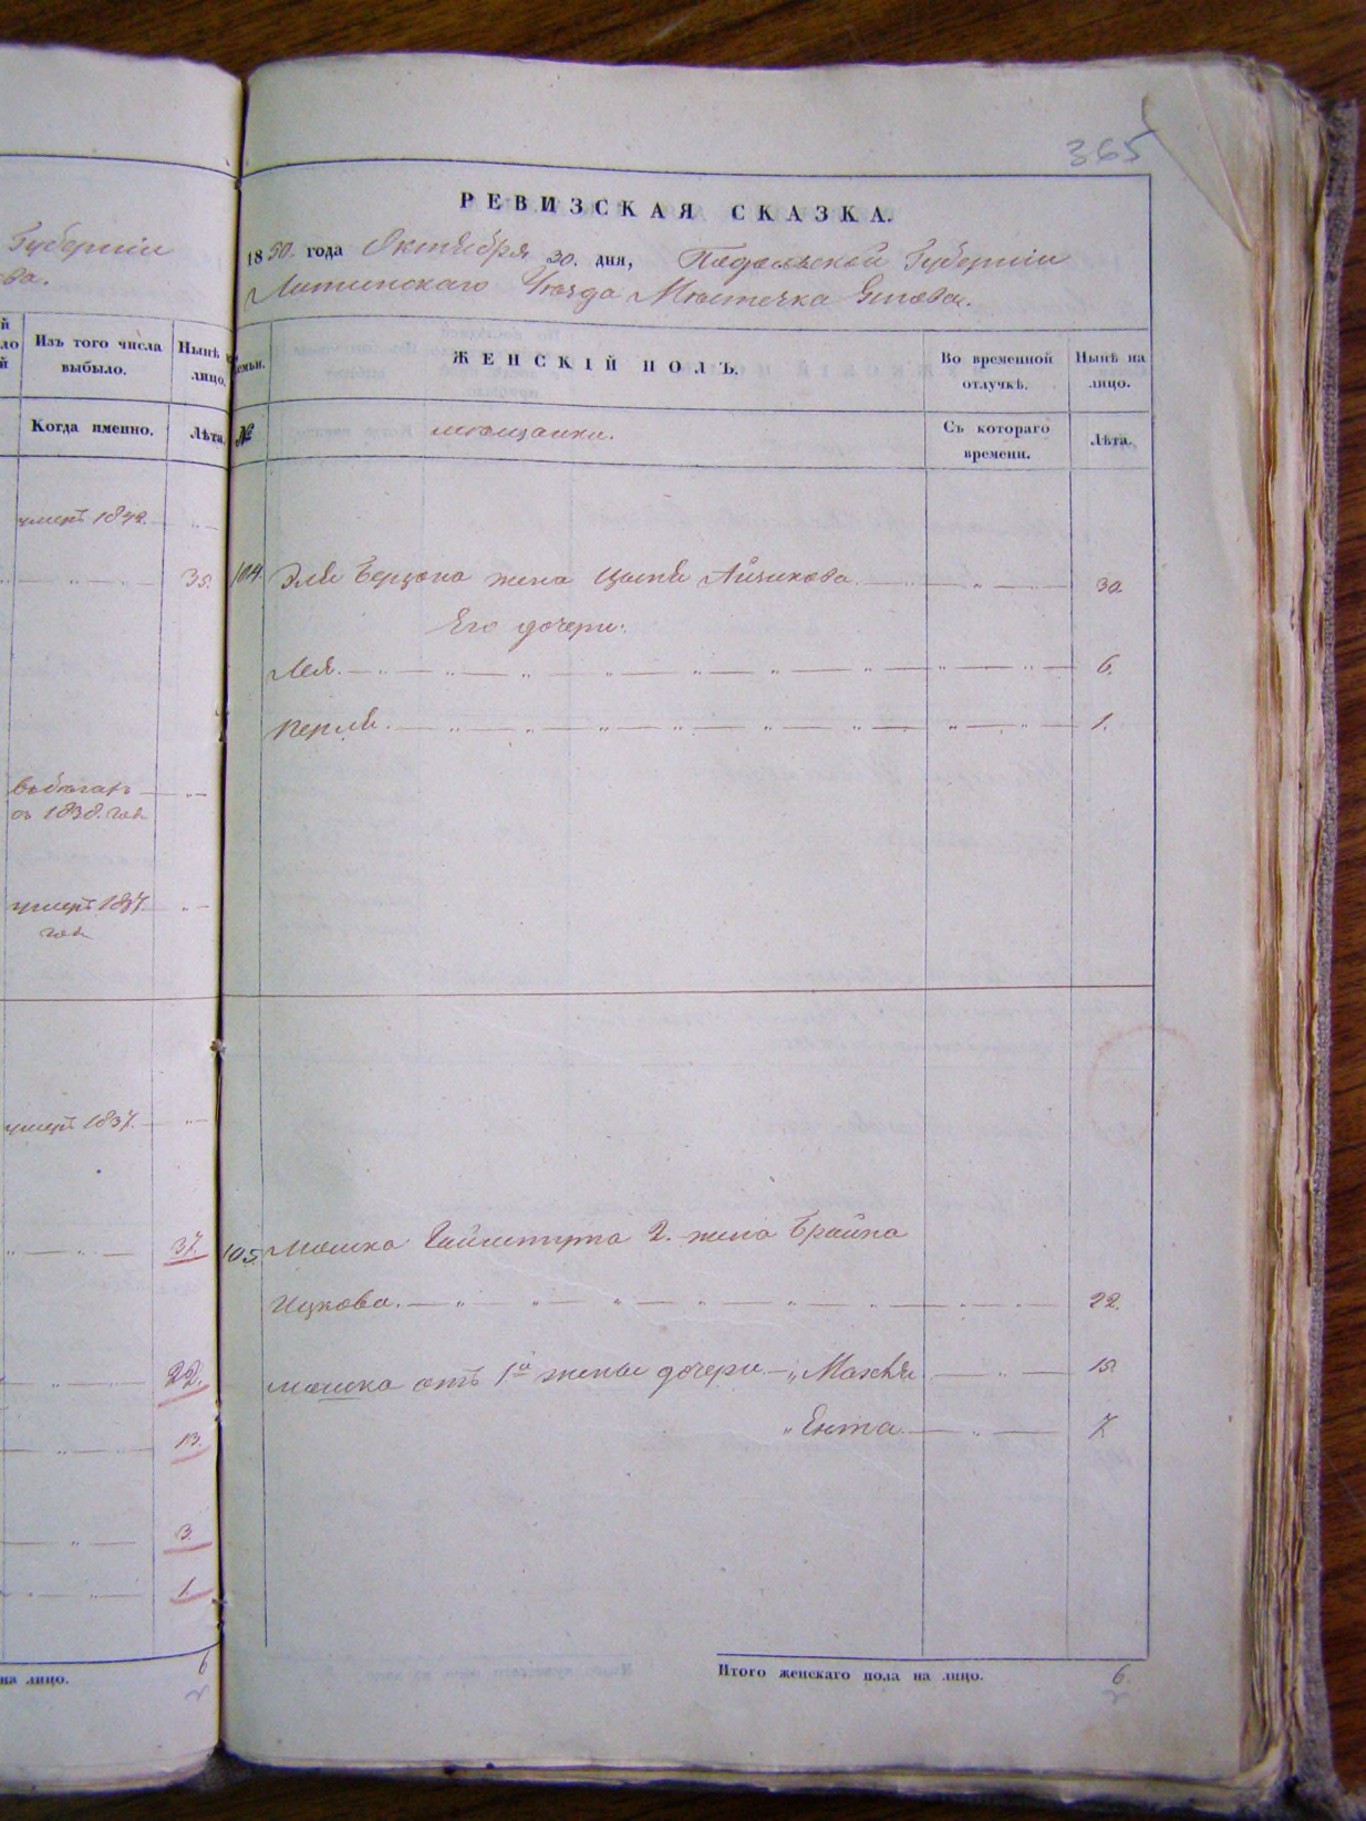 Губерніи
ова.
Изъ того числа
выбыло.
Нынѣ
лицо.
Когда именно.
Лѣта.
умеръ 1842.
35.
въ бѣгахъ
съ 1838. года
умеръ 1837.
года
умеръ 1837.
37.
22.
13.
3.
1.
на лицо.
6
365
РЕВИЗСКАЯ СКАЗКА.
1850. года Октября 30. дня, Подольской Губерніи
Литинскаго Уѣзда Мѣстечка
семьи.
ЖЕНСКІЙ ПОЛЪ.
Во временной
отлучкѣ.
Нынѣ на
лицо.
№
мѣщанки.
Съ котораго
времени.
Лѣта.
104. Эли Берцона жена Ципя Айзикова. 30.
Его дочери:
Лея. 6.
Перля. 1.
105. Мошка 2. жена Брайна
Ицкова. 22.
Мошка отъ 1й жены дочери Махля 15.
Ента 7.
Итого женскаго пола на лицо. 6.